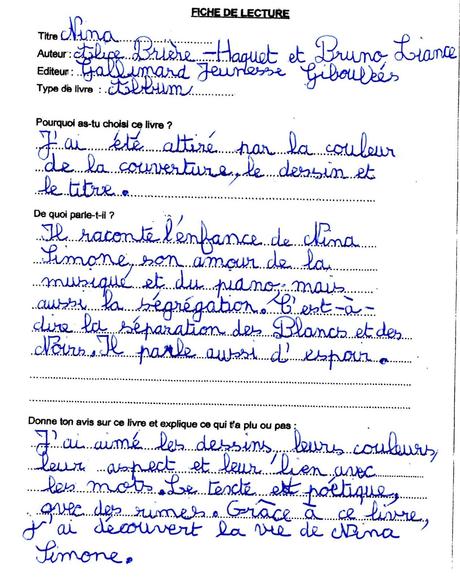 FICHE DE LECTURE
Titre Nina
Auteur : Alice Brière-Haquet et Bruno Liance
Editeur : Gallimard Jeunesse Giboulées
Type de livre : Album
Pourquoi as-tu choisi ce livre ?
J'ai été attiré par la couleur
de la couverture, le dessin et
le titre.
De quoi parle-t-il ?
Il raconte l'enfance de Nina
Simone, son amour de la
musique et du piano mais
aussi la ségrégation. C'est-à-
dire la séparation des Blancs et des
Noirs. Il parle aussi d'espoir.
Donne ton avis sur ce livre et explique ce qui t'a plu ou pas :
J'ai aimé les dessins, leurs couleurs,
leur aspect et leur lien avec
les mots. Le texte est poétique,
avec des rimes. Grâce à ce livre,
j'ai découvert la vie de Nina
Simone.